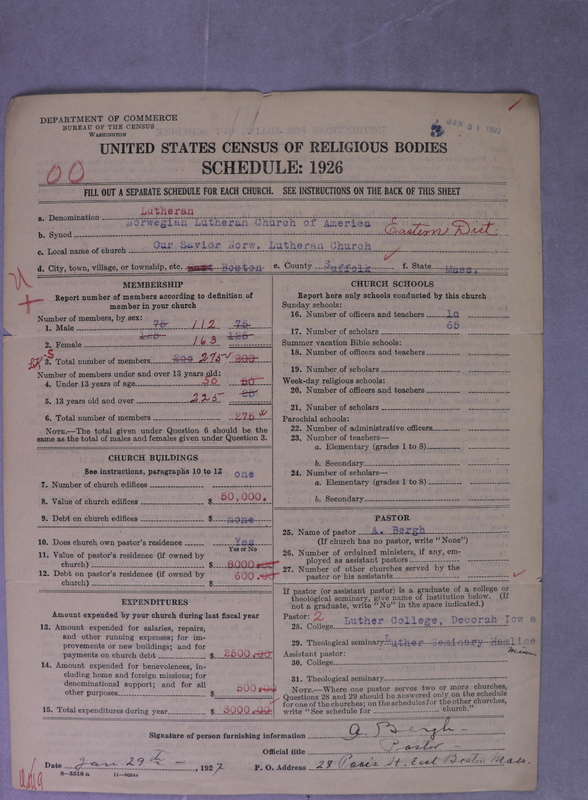 DEPARTMENT OF COMMERCE
BUREAU OF THE CENSUS
WASHINGTON
JAN 31 1927
UNITED STATES CENSUS OF RELIGIOUS BODIES
SCHEDULE: 1926
00
FILL OUT A SEPARATE SCHEDULE FOR EACH CHURCH. SEE INSTRUCTIONS ON THE BACK OF THIS SHEET
a. Denomination Lutheran
b. Synod Norwegian Lutheran Church of America Eastern Dist
c. Local name of church Our Savior Norw. Lutheran Church
d. City, town, village, or township, etc. Boston e. County Suffolk f. State Mass.
MEMBERSHIP
Report number of members according to definition of member in your church
Number of members, by sex:
1. Male 75 112 75
2. Female 125 163 125
3. Total number of members 200 275 200
Number of members under and over 13 years old:
4. Under 13 years of age 50 50
5. 13 years old and over 225
6. Total number of members 275
NOTE.—The total given under Question 6 should be the same as the total of males and females given under Question 3.
CHURCH BUILDINGS
See instructions, paragraphs 10 to 12
7. Number of church edifices one
8. Value of church edifices $ 50,000.
9. Debt on church edifices $ none
10. Does church own pastor's residence? Yes
Yes or No
11. Value of pastor's residence (if owned by church) $ 8000.00
12. Debt on pastor's residence (if owned by church) $ 600.00
EXPENDITURES
Amount expended by your church during last fiscal year
13. Amount expended for salaries, repairs, and other running expenses; for improvements or new buildings; and for payments on church debt $ 2500.00
14. Amount expended for benevolences, including home and foreign missions; for denominational support; and for all other purposes $ 500.00
15. Total expenditures during year $ 3000.00
CHURCH SCHOOLS
Report here only schools conducted by this church
Sunday schools:
16. Number of officers and teachers 10
17. Number of scholars 65
Summer vacation Bible schools:
18. Number of officers and teachers
19. Number of scholars
Week-day religious schools:
20. Number of officers and teachers
21. Number of scholars
Parochial schools:
22. Number of administrative officers
23. Number of teachers—
a. Elementary (grades 1 to 8)
b. Secondary
24. Number of scholars—
a. Elementary (grades 1 to 8)
b. Secondary
PASTOR
25. Name of pastor A. Bergh
(If church has no pastor, write "None")
26. Number of ordained ministers, if any, employed as assistant pastors
27. Number of other churches served by the pastor or his assistants
If pastor (or assistant pastor) is a graduate of a college or theological seminary, give name of institution below. (If not a graduate, write "No" in the space indicated.)
Pastor: 2
28. College Luther College, Decorah Iowa
29. Theological seminary Luther Seminary Hamline Minn
Assistant pastor:
30. College
31. Theological seminary
NOTE.—Where one pastor serves two or more churches, Questions 28 and 29 should be answered only on the schedule for one of the churches; on the schedules for the other churches, write "See schedule for church."
Signature of person furnishing information A. Bergh
Official title Pastor
Date Jan. 29th, 1927 P. O. Address 28 Paris St. East Boston Mass.
8—5518 a